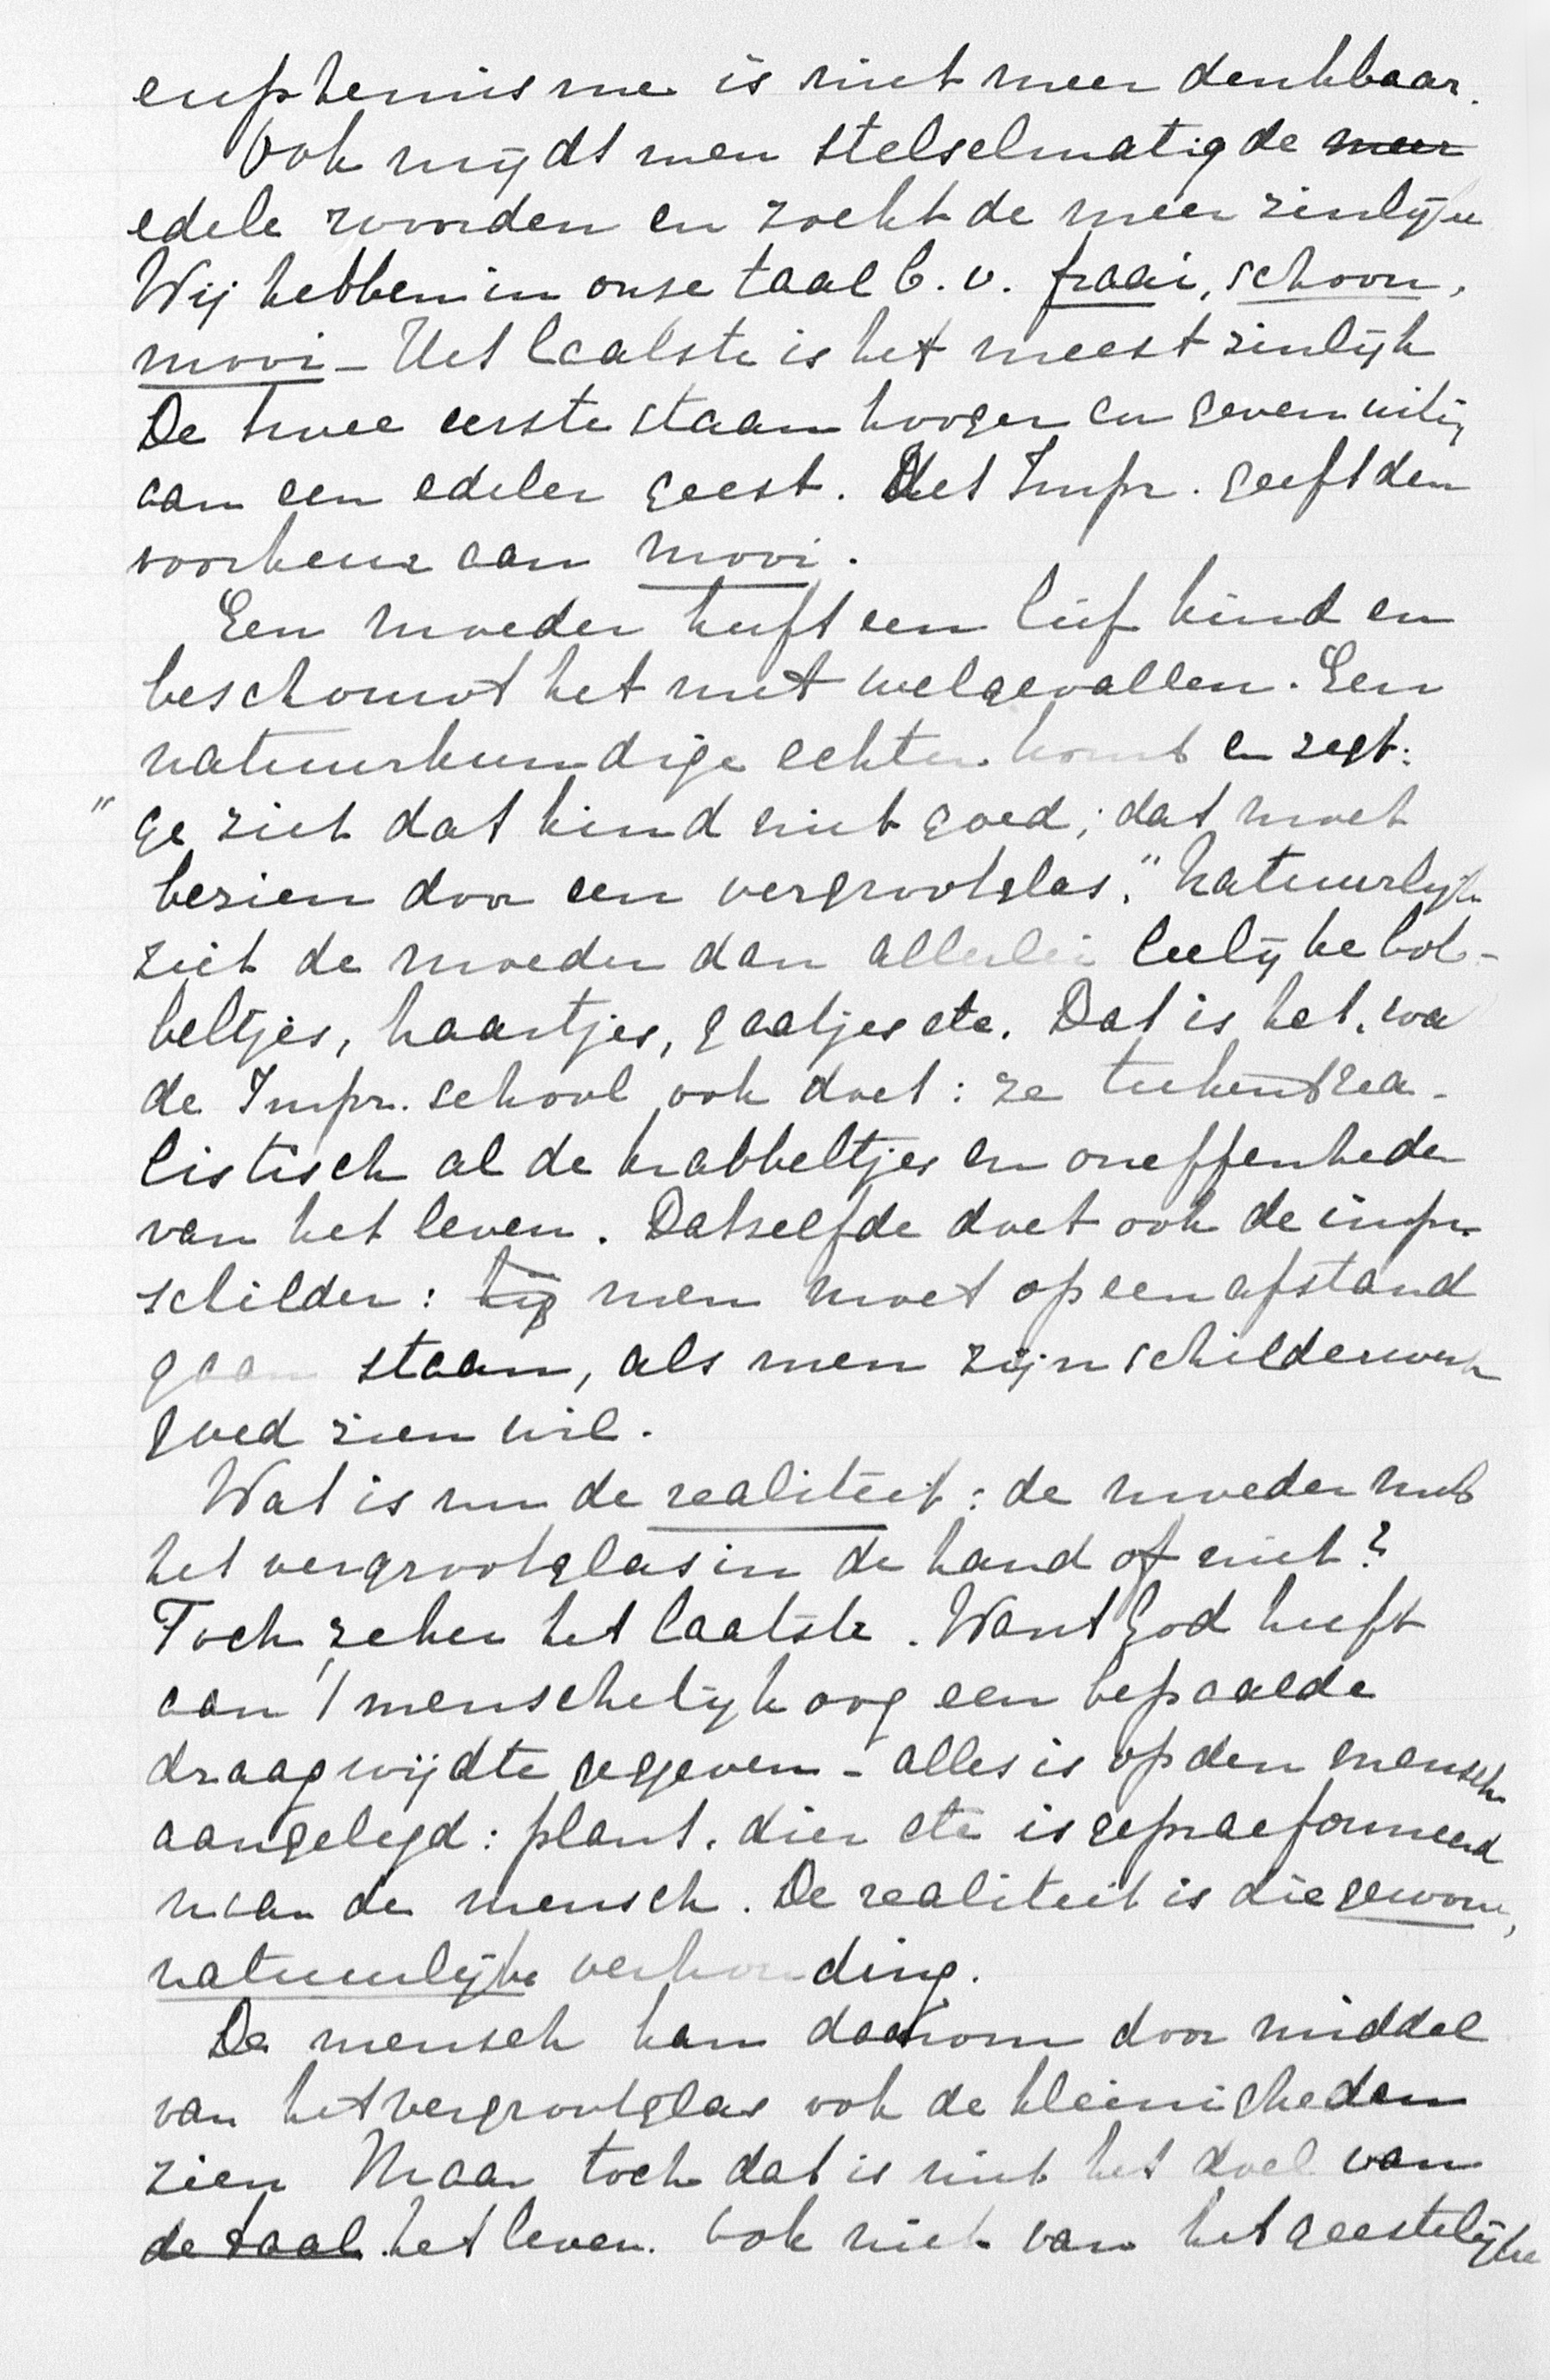 euphemisme is niet meer denkbaar.
Ook mijdt men stelselmatig de meer
edele woorden en zoekt de meer zinlijke
Wij hebben in onse taal b.v. fraai, schoon,
mooi - Het laatste is het meest zinlijk
De twee eerste staan hooger en geven uiting
aan een edeler geest. Het Impr. geeft den
voorkeur aan mooi.
Een moeder heeft een lief kind en
beschouwt het met welgevallen. Een
natuurkundige echter komt en zegt:
" ge ziet dat kind niet goed; dat moet
bezien door een vergrootglas." Natuurlijk
ziet de moeder dan allerlei leelijke bob-
beltjes, haartjes, gaatjes etc. Dat is het, wa
de Impr. school ook doet: ze teekent rea-
listisch al de krabbeltjes en oneffenheden
van het leven. Datzelfde doet ook de impr.
schilder: hij men moet op een afstand
gaan staan, als men zijn schilderwerk
goed zien wil.
Wat is nu de realiteit: de moeder met
het vergrootglas in de hand of niet?
Toch zeker het laatste. Want God heeft
aan 't menschelijk oog een bepaalde
draagwijdte gegeven - alles is op den mensch
aangelegd: plant, dier etc is gepraeformeerd
naar de mensch. De realiteit is die gewone,
natuurlijke verhouding.
De mensch kan daarom door middel
van het vergrootglas ook de kleinigheden
zien Maar toch dat is niet het doel van
de taal het leven. Ook niet van het geestelijke